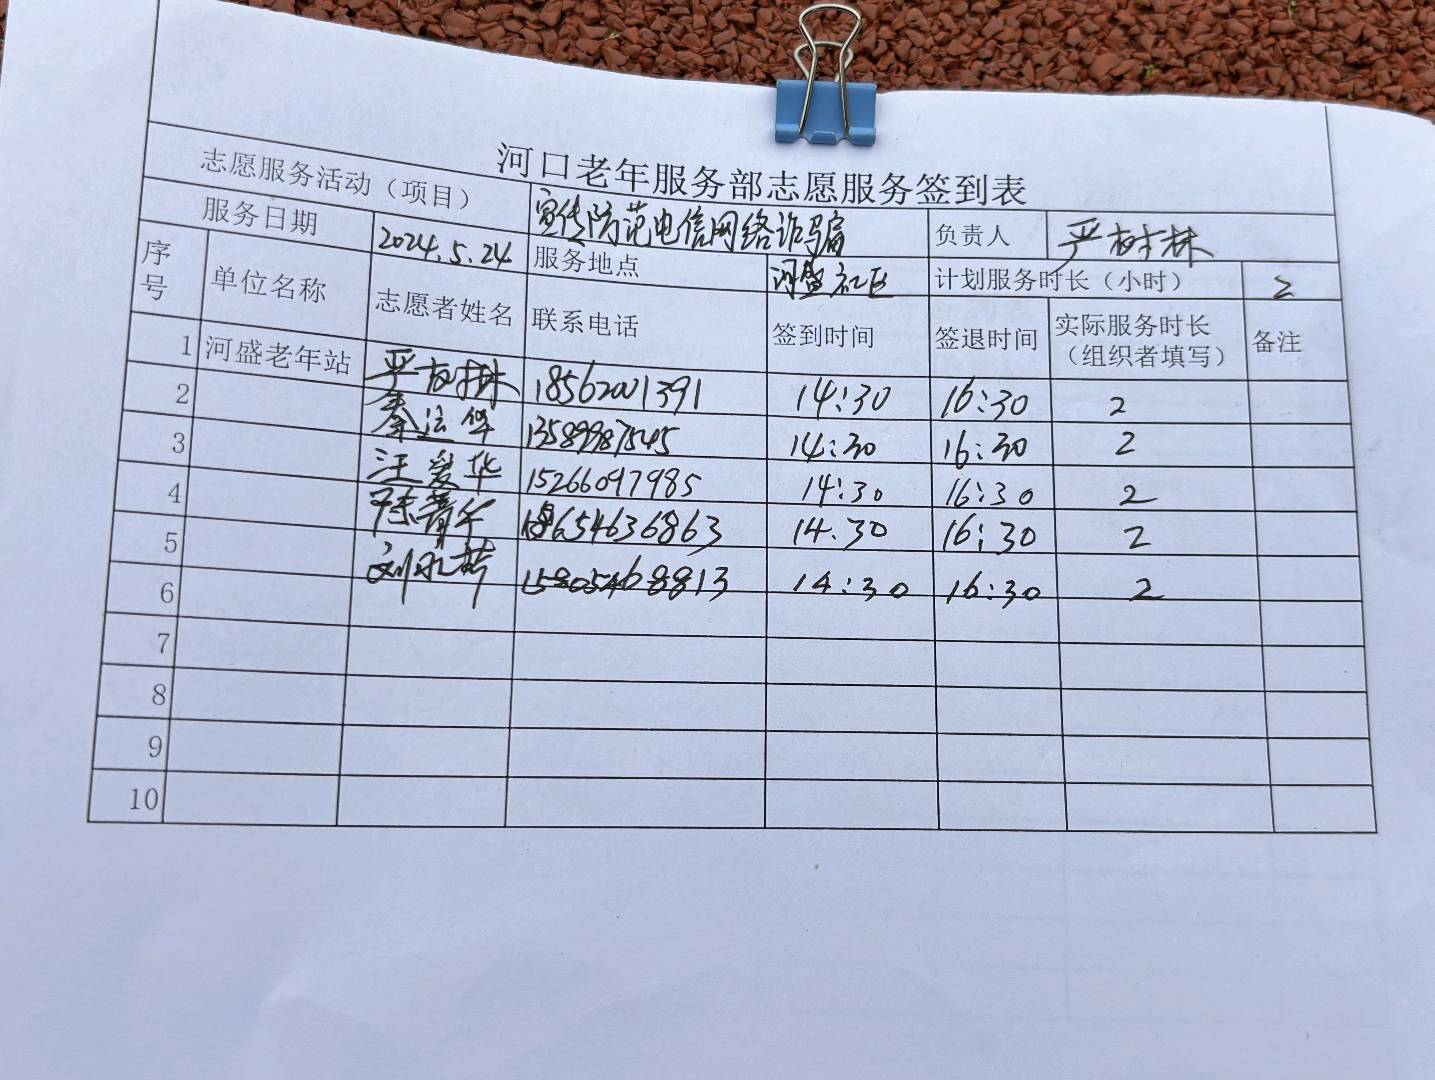 河口老年服务部志愿服务签到表
志愿服务活动（项目） 宣传防范电信网络诈骗 负责人 严树林
服务日期 2024.5.24 服务地点 河盛社区 计划服务时长（小时） 2
序号 单位名称 志愿者姓名 联系电话 签到时间 签退时间 实际服务时长（组织者填写） 备注
1 河盛老年站 严树林 18562001391 14:30 16:30 2
2 秦运华 13589987545 14:30 16:30 2
3 汪爱华 15266097985 14:30 16:30 2
4 陈 18654636863 14.30 16:30 2
5 刘 15805468813 14:30 16:30 2
6
7
8
9
10